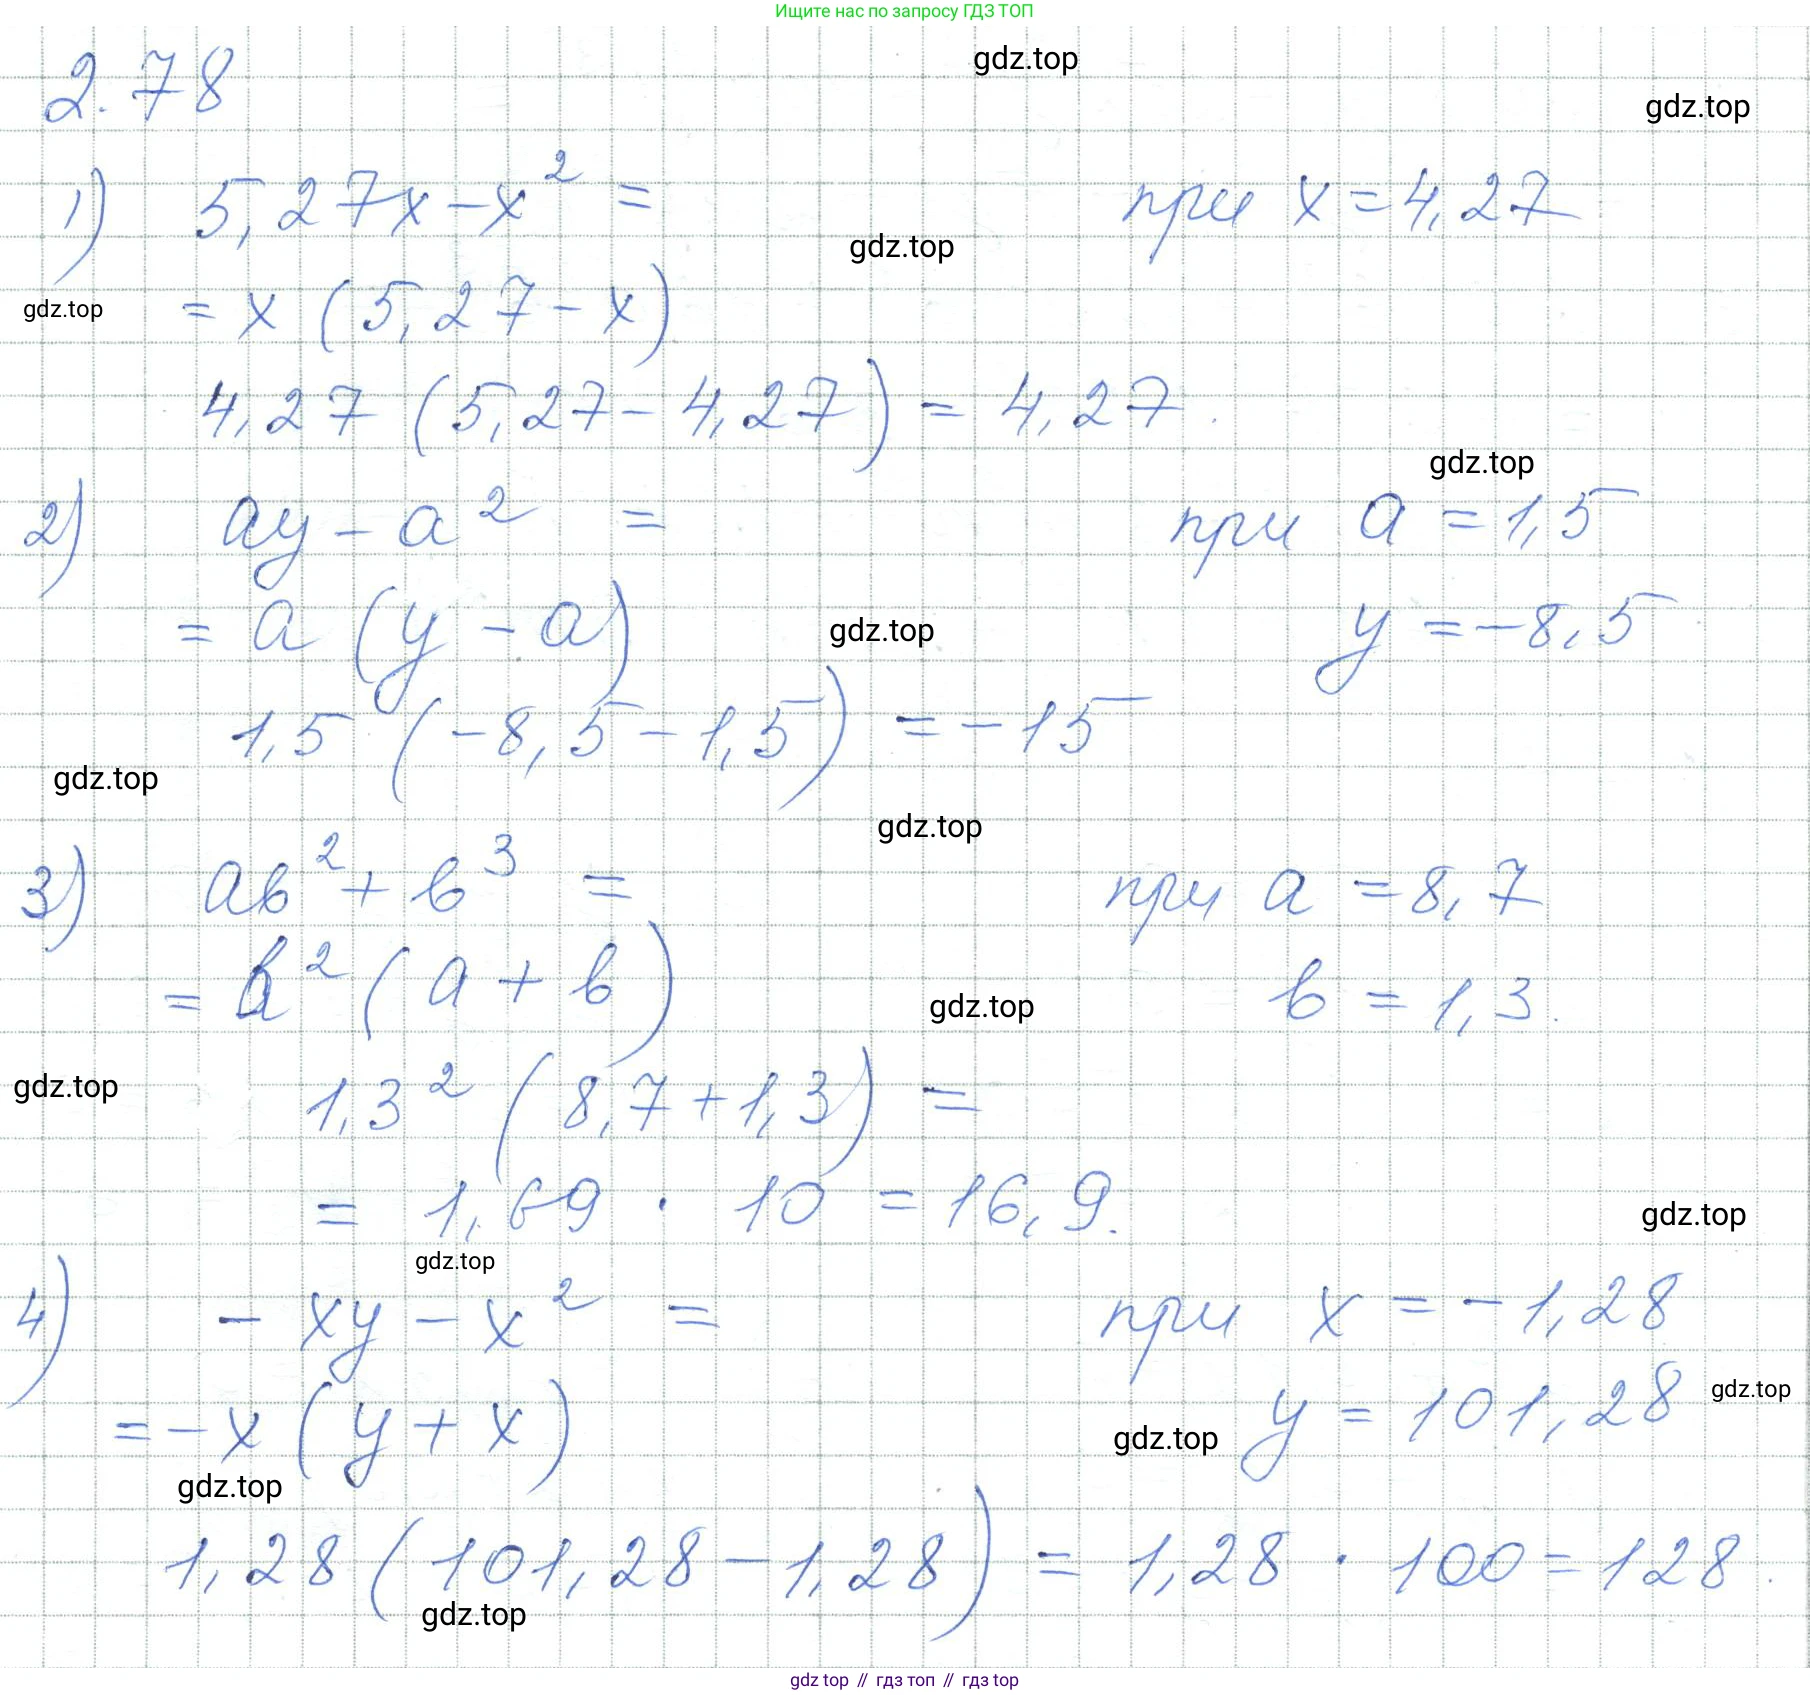 Ищите нас по запросу ГДЗ ТОП
gdz.top
2.78
gdz.top
1) 5,27x - x² = при x = 4,27
gdz.top
= x (5,27 - x)
gdz.top
4,27 (5,27 - 4,27) = 4,27.
gdz.top
2) ay - a² = при a = 1,5
= a (y - a) y = -8,5
gdz.top
1,5 (-8,5 - 1,5) = -15
gdz.top
gdz.top
3) ab² + b³ = при a = 8,7
= b² (a + b) b = 1,3.
gdz.top
gdz.top
1,3² (8,7 + 1,3) =
= 1,69 · 10 = 16,9.
gdz.top
gdz.top
4) - xy - x² = при x = -1,28
= -x (y + x) y = 101,28
gdz.top
gdz.top
gdz.top
1,28 (101,28 - 1,28) = 1,28 · 100 = 128.
gdz.top
gdz top // гдз топ // гдз top